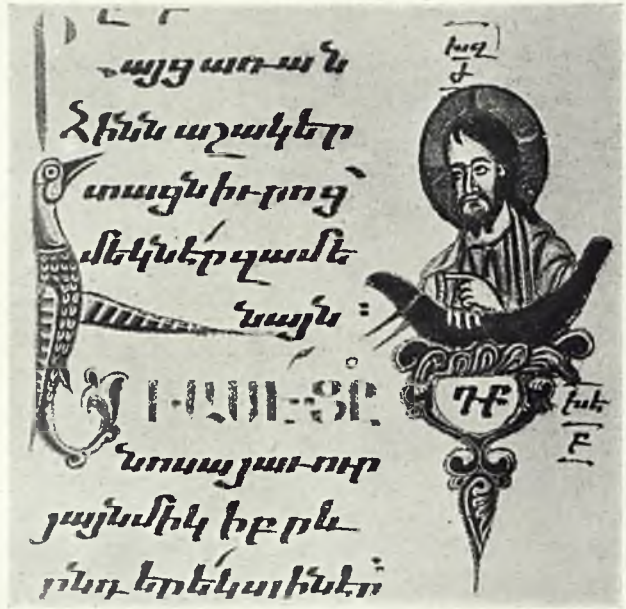 այց առան
ձինն աշակեր
տացն իւրոց
մեկնէր զամե
նայն :
նոսա յաւուր
յայնմիկ իբրև
ընդ երեկս լինէր